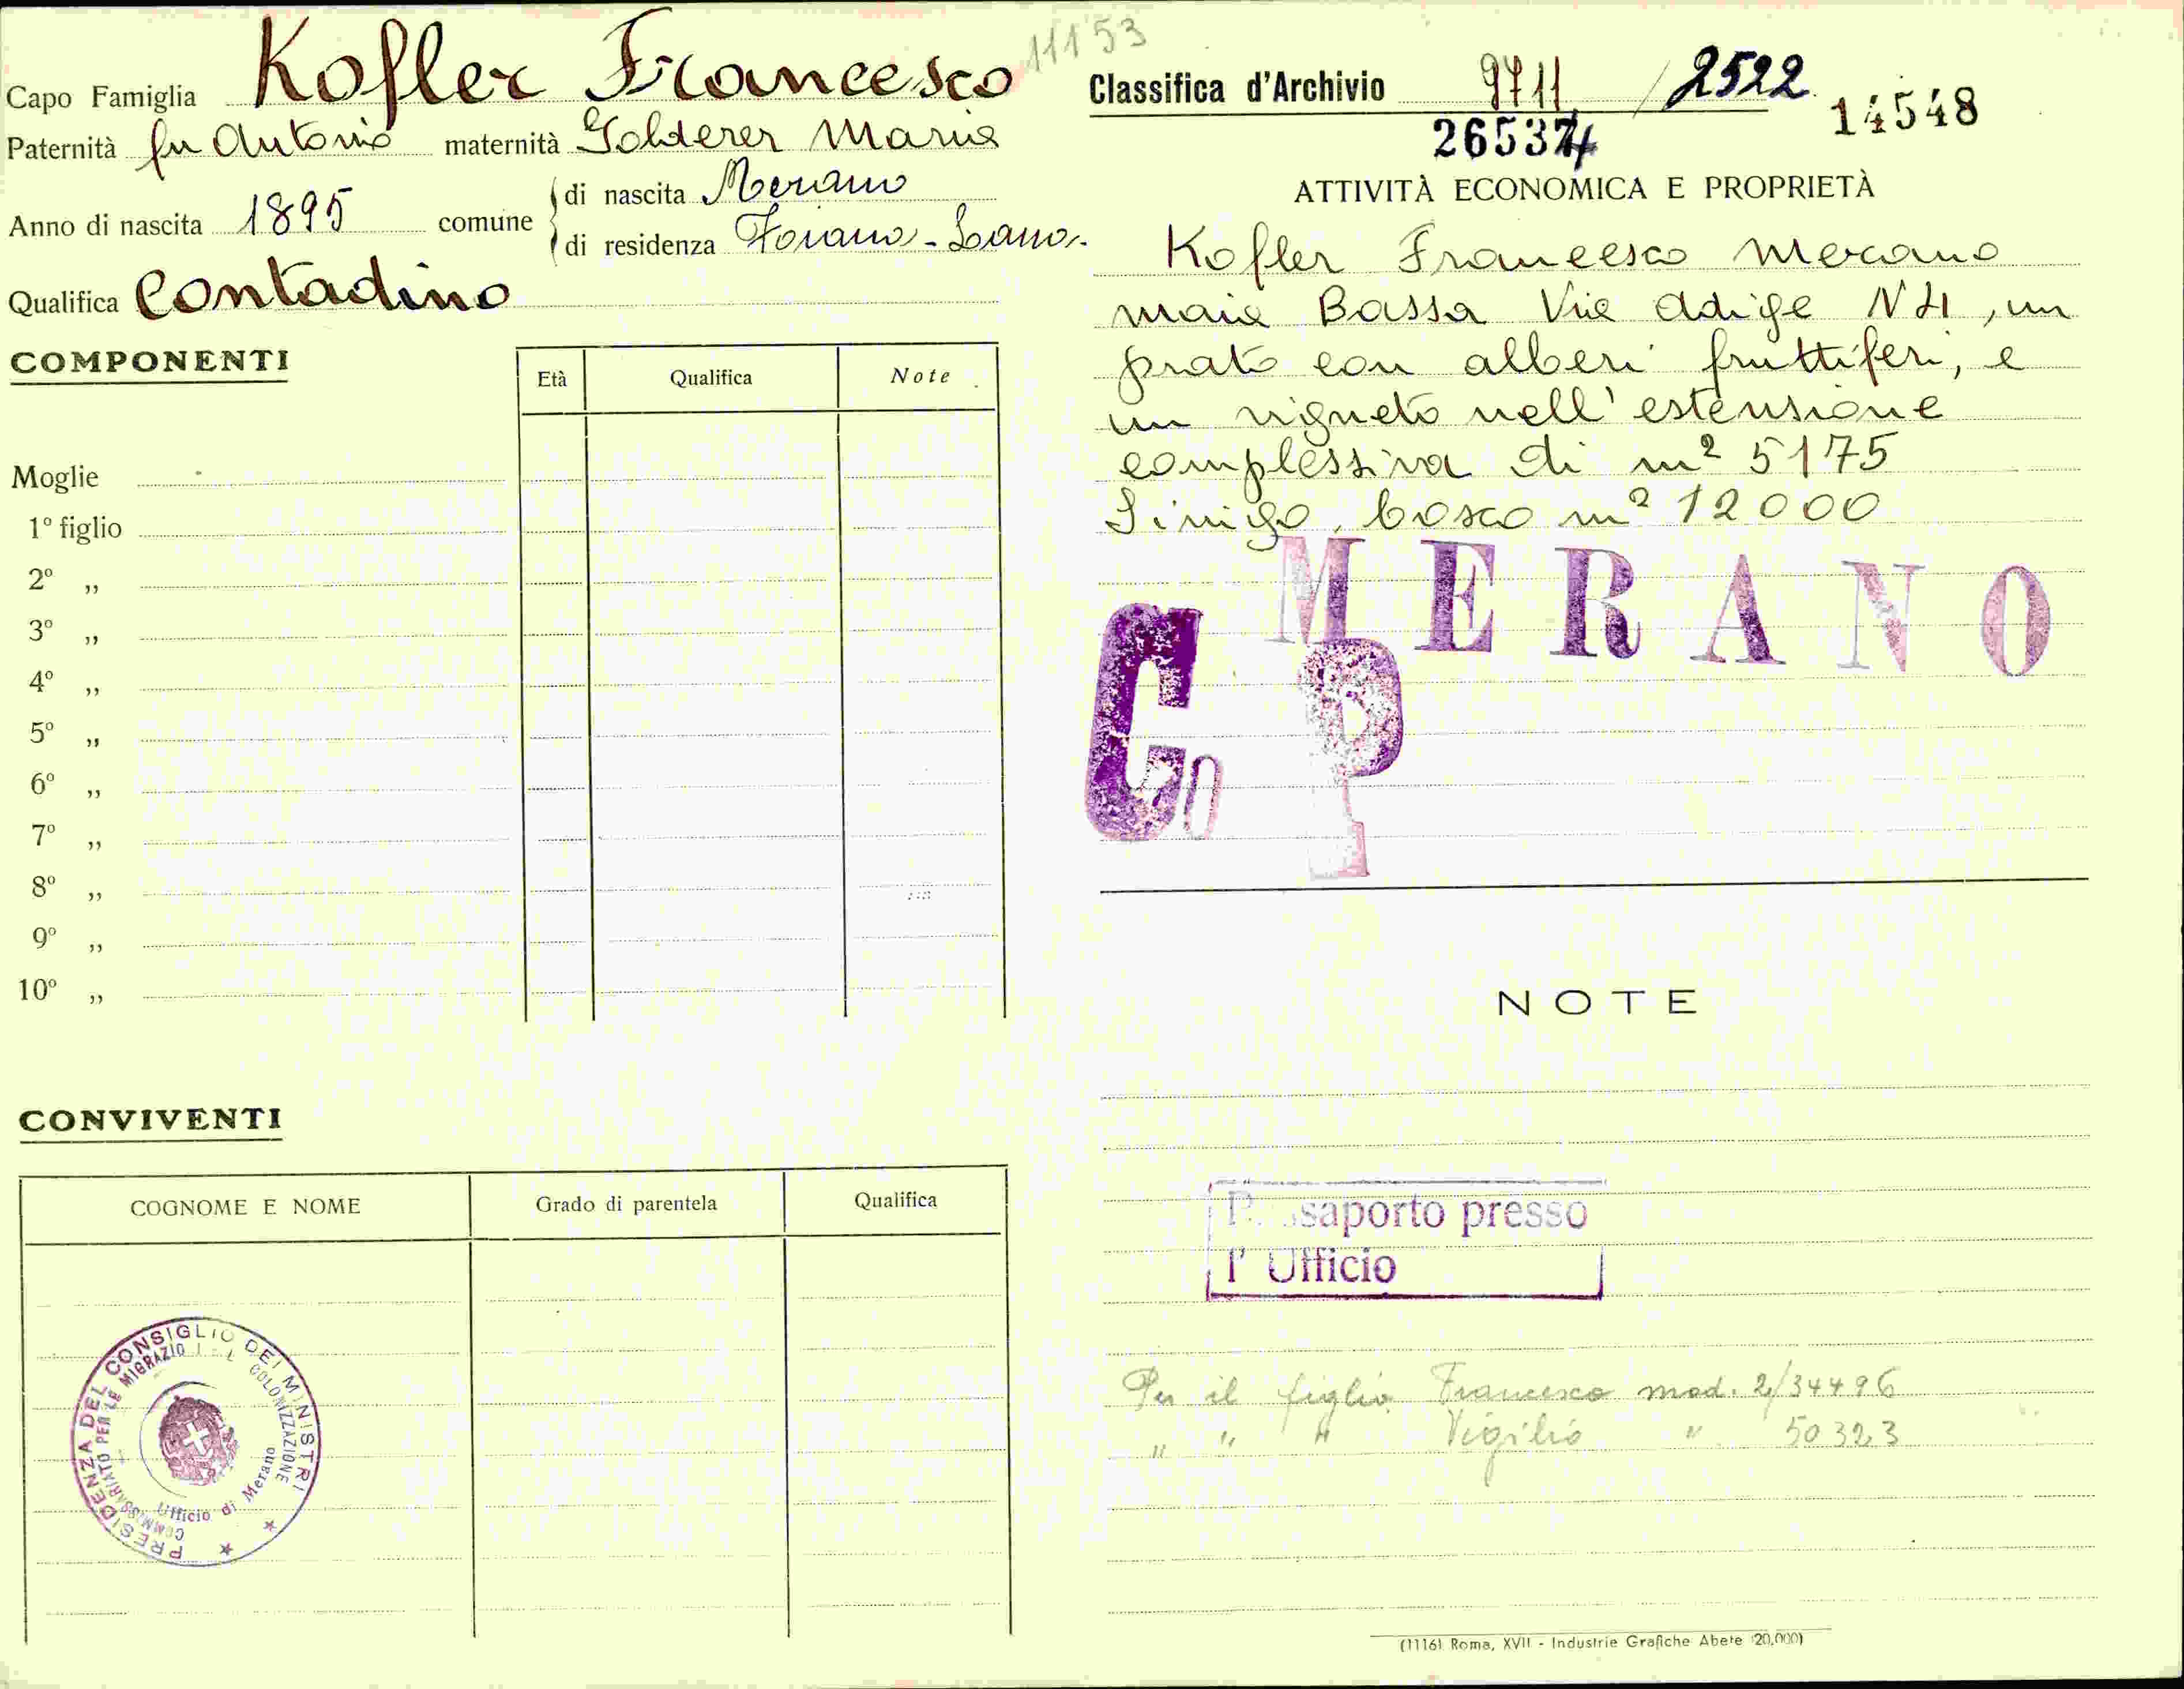 Capo Famiglia Kofler Francesco 11153
Paternità fu Antonio maternità Golderer Maria
Anno di nascita 1895 comune di nascita Merano
di residenza Foiana - Lana.
Qualifica Contadino
COMPONENTI
Età Qualifica Note
Moglie
1º figlio
2º „
3º „
4º „
5º „
6º „
7º „
8º „
9º „
10º „
CONVIVENTI
COGNOME E NOME Grado di parentela Qualifica
PRESIDENZA DEL CONSIGLIO DEI MINISTRI
COMMISSARIATO PER LE MIGRAZIONI E L COLONIZZAZIONE
Ufficio di Merano
Classifica d'Archivio 9711 / 2522
26537 14548
ATTIVITÀ ECONOMICA E PROPRIETÀ
Kofler Francesco Merano
Maia Bassa Via Adige N 41, un
prato con alberi fruttiferi, e
un vigneto nell'estensione
complessiva di m² 5175
Sinigo, bosco m² 12000
MERANO
C P
NOTE
Passaporto presso
l' Ufficio
Per il figlio Francesco mod. 2/34496
„ „ „ Vigilio „ 50323
(1116) Roma, XVII - Industrie Grafiche Abete (20.000)